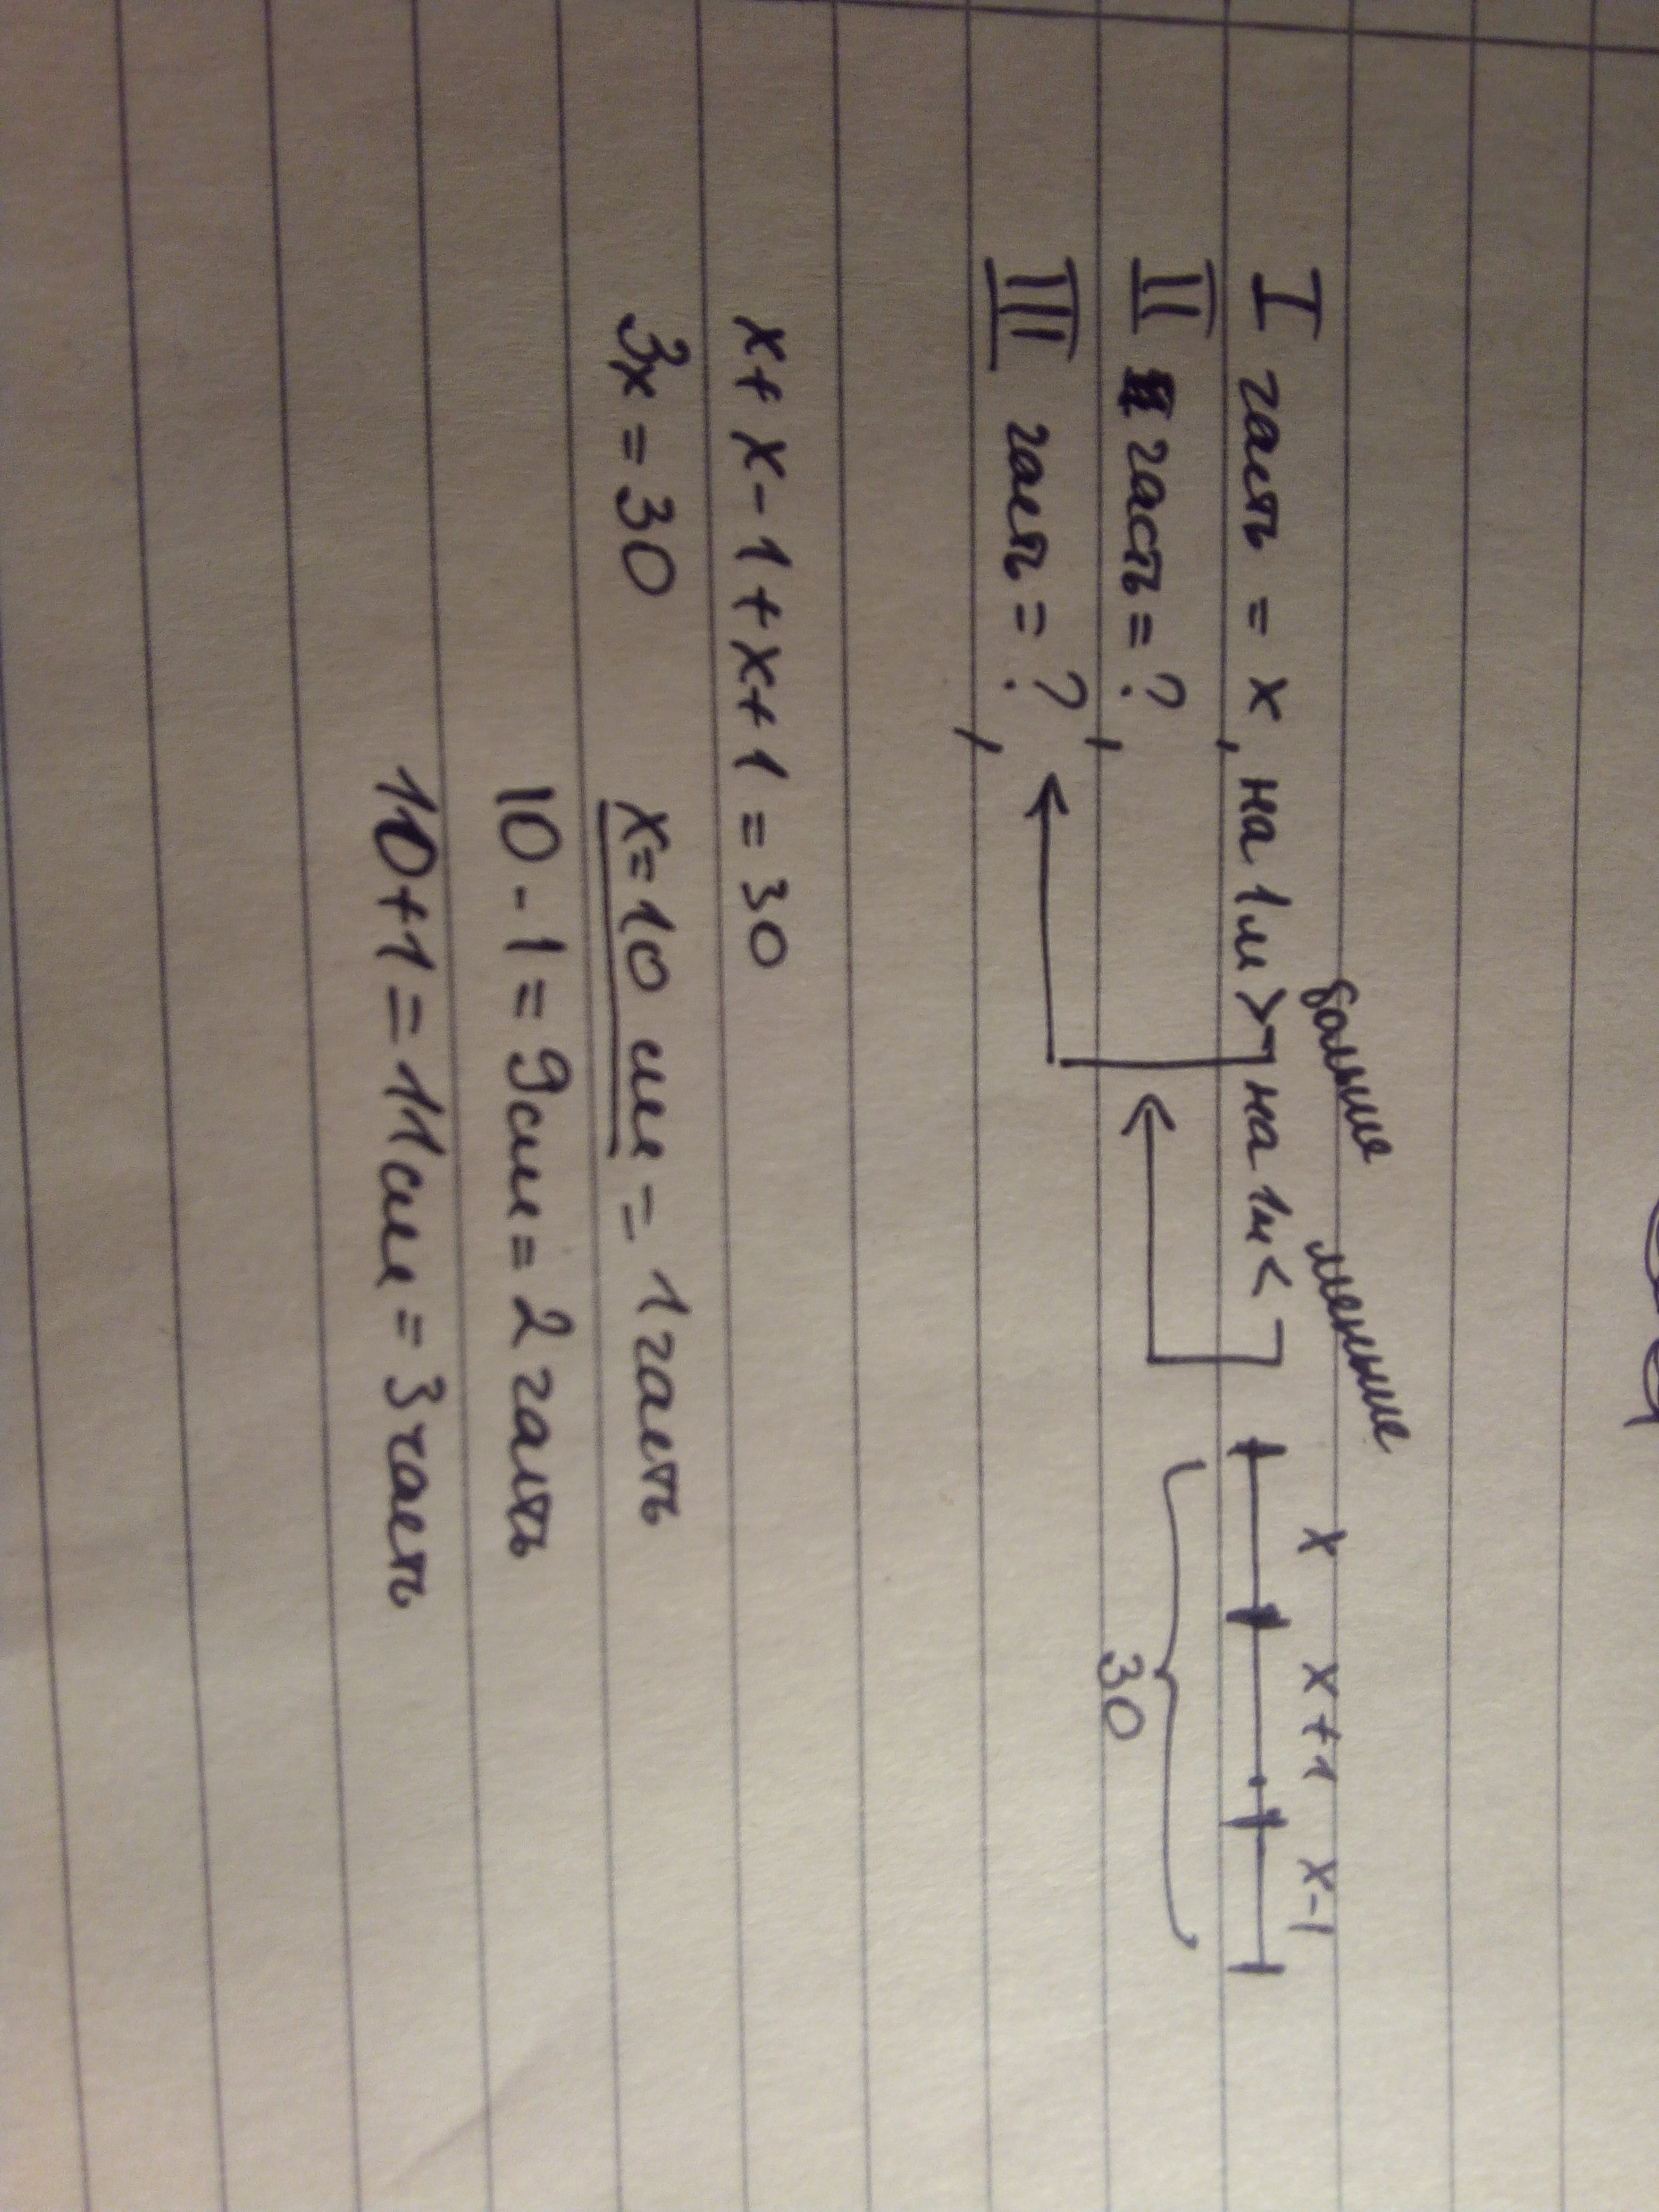 больше меньше
I часть = x, на 1м > на 1м <
x x+1 x-1
II часть = ?,
30
III часть = ?,
x + x - 1 + x + 1 = 30
3x = 30 x = 10 см = 1 часть
10 - 1 = 9см = 2 часть
10 + 1 = 11см = 3 часть